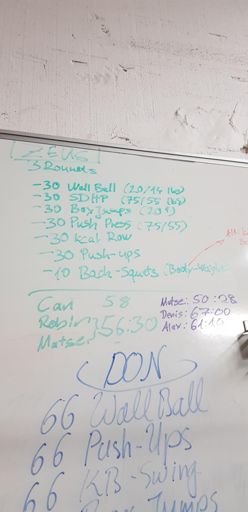 [ZEUS]
3 Rounds
-30 Wall Ball (20/14 lbs)
-30 SDHP (75/55 lbs)
-30 Box Jumps (20")
-30 Push Press (75/55)
-30 Kcal Row
-30 Push-ups
-10 Back-Squats (Body-Weight)
Can 58
Robin
Matse 56:30
Matse: 50:28
Denis: 67:00
Alex: 61:10
DON
66 Wall Ball
66 Push-Ups
66 KB-Swing
66 Box Jumps